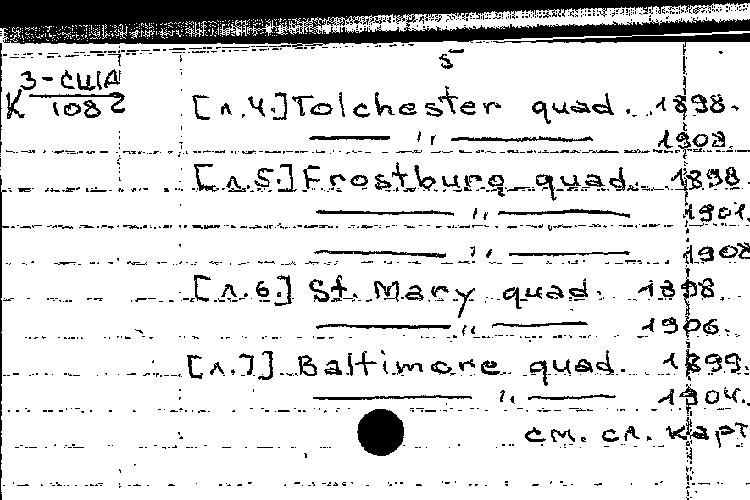 5
К 3-США
1082
[л.4.] Tolchester quad. 1898.
—— „ —— 1908
[л.5.] Frostburg quad. 1898
—— „ —— 1901
—— „ —— 1908
[л.6.] St. Mary quad. 1898.
—— „ —— 1906.
[л.7] Baltimore quad. 1899.
—— „ —— 1904.
см. сл. карт